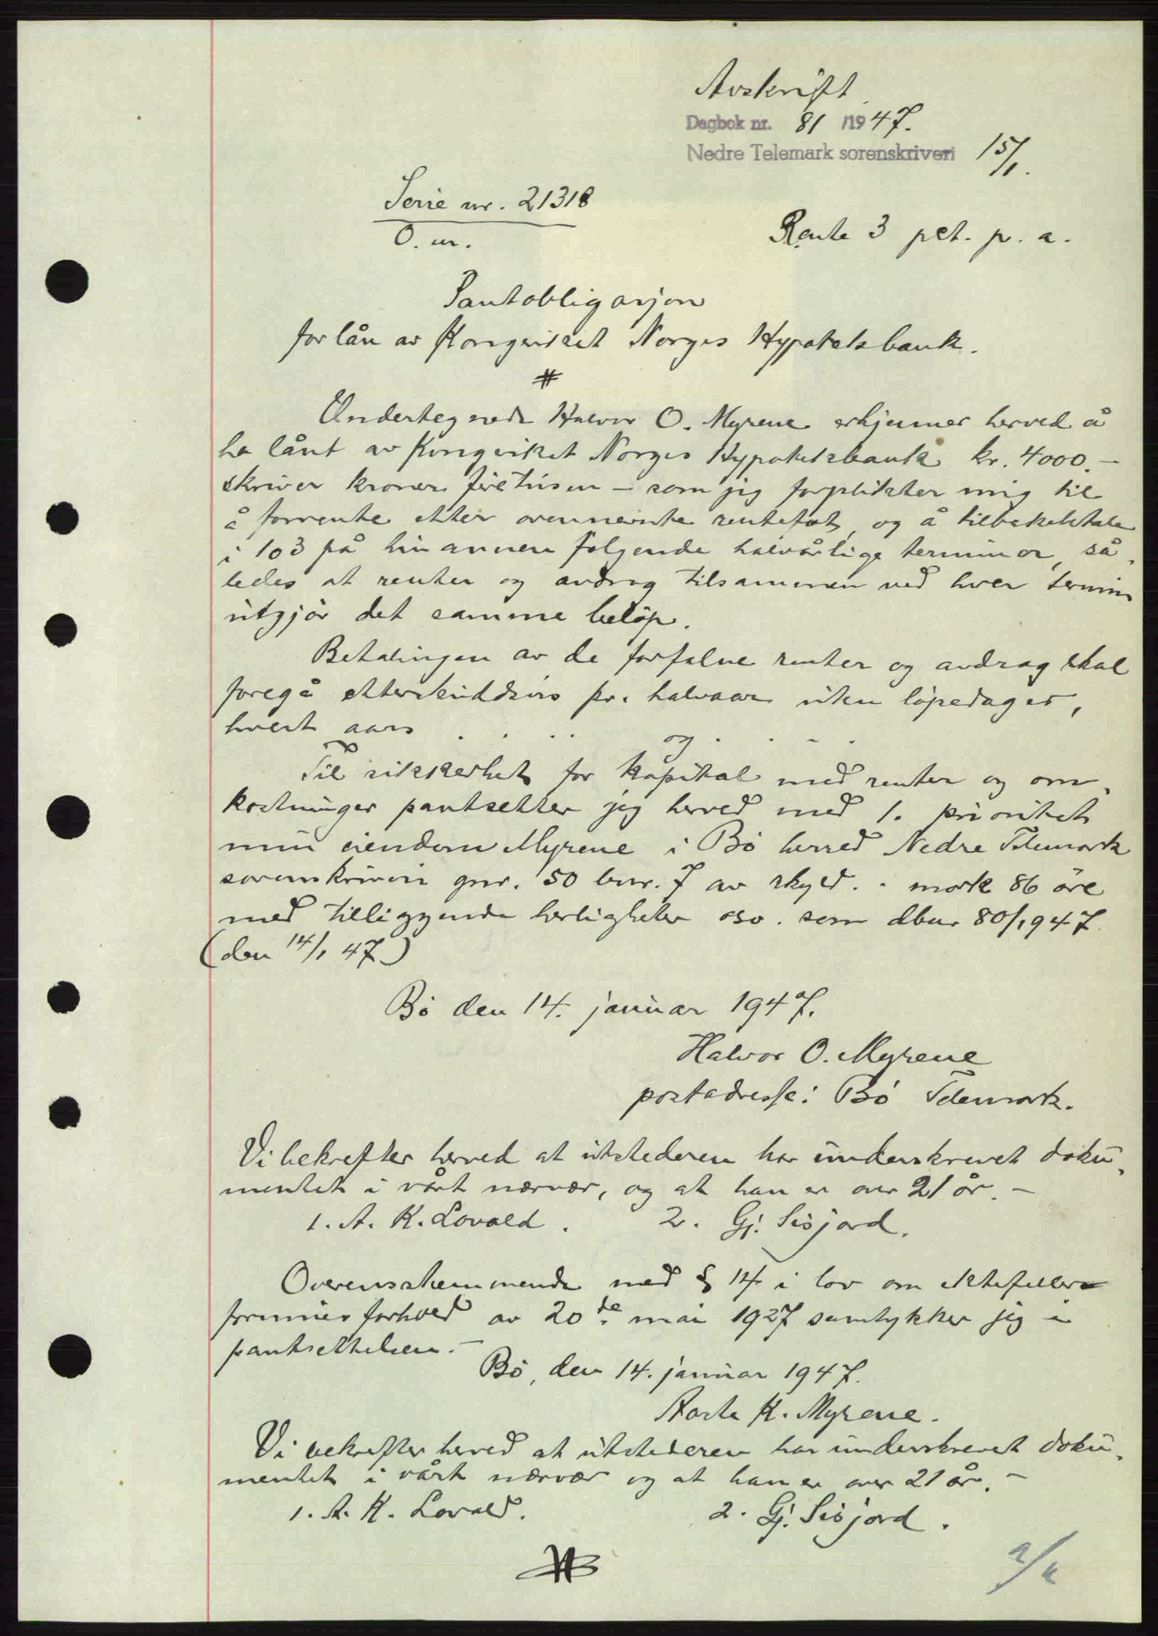 Avskrift
Dagbok nr. 81 /1947.
Nedre Telemark sorenskriveri 15/1.
Serie nr. 21318
O. nr.
Rente 3 pct. p. a.
Pantobligasjon
for lån av Kongeriket Norges Hypotekbank.
#
Undertegnede Halvor O. Myrene erkjenner herved å
ha lånt av Kongeriket Norges Hypotekbank kr. 4000.-
skriver kroner firetusen - som jeg forplikter mig til
å forrente etter ovennevnte rentefot, og å tilbakebetale
i 103 på hinannen følgende halvårlige terminer, så-
ledes at renter og avdrag tilsammen ved hver termin
utgjør det samme beløp.
Betalingen av de forfalne renter og avdrag skal
foregå etterskuddsvis pr. halvaar uten løpedager,
hvert aars . . . . og . . . .
Til sikkerhet for kapital med renter og om-
kostninger pantsetter jeg herved med 1. prioritet
min eiendom Myrene i Bø herred Nedre Telemark
sorenskriveri gnr. 50 bnr. 7 av skyld. - mark 86 øre
med tilliggende herligheter oso. som dbnr 80/1947
(den 14/1 47)
Bø den 14. januar 1947.
Halvor O. Myrene
postadresse: Bø Telemark.
Vi bekrefter herved at utstederen har underskrevet doku-
mentet i vårt nærvær, og at han er over 21 år. -
1. A. K. Lovald. 2. Gj. Sisjord.
Overensstemmende med § 14 i lov om ektefellers
formuesforhold av 20de mai 1927 samtykker jeg i
pantsettelsen. -
Bø, den 14. januar 1947.
Aaste K. Myrene.
Vi bekrefter herved at utstederen har underskrevet doku-
mentet i vårt nærvær og at han er over 21 år. -
1. A. K. Lovald. 2. Gj. Sisjord.